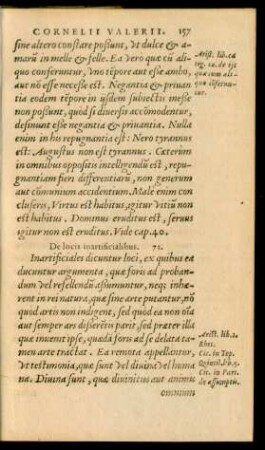 CORNELII VALERII. 157
sine altero constare possunt, vt dulce & a-
marũ in melle & felle. Ea vero quæ cũ ali-
quo conferuntur, vno tẽpore aut esse ambo,
aut nõ esse necesse est. Negantia & priuan
tia eodem tẽpore in ijsdem subiectis inesse
non possunt, quod si diuersis accõmodentur,
desinunt esse negantia & priuantia. Nulla
enim in his repugnantia est: Nero tyrannus
est. Augustus non est tyrannus. Cæterùm
in omnibus oppositis intelligendũ est, repu-
gnantiam fieri differentiarũ, non generum
aut cõmunium accidentium. Male enim con
cluseris, Virtus est habitus, igitur vitiũ non
est habitus. Dominus eruditus est, seruus
igitur non est eruditus. Vide cap. 40.
De locis inartificialibus. 71.
Inartificiales dicuntur loci, ex quibus ea
ducuntur argumenta, quæ foris ad proban-
dum vel refellendũ assumuntur, neq; inhæ-
rent in rei natura, quæ sine arte putantur, nõ
quòd artis non indigent, sed quòd ea non oĩa
aut semper ars disserẽti parit, sed præter illa
quæ inuenit ipse, quædam foris ad se delata ta-
men arte tractat. Ea remota appellantur,
vt testimonia, quæ sunt vel diuina vel huma
na. Diuina sunt, quæ diuinitus aut animis
omnium
Arist. lib. ca
teg. ca. de ijs
quæ cum ali-
quo conferun-
tur.
Arist. lib. 1.
Rhet.
Cic. in Top.
Quintil. lib. 5.
Cic. in Part.
de assumptis.